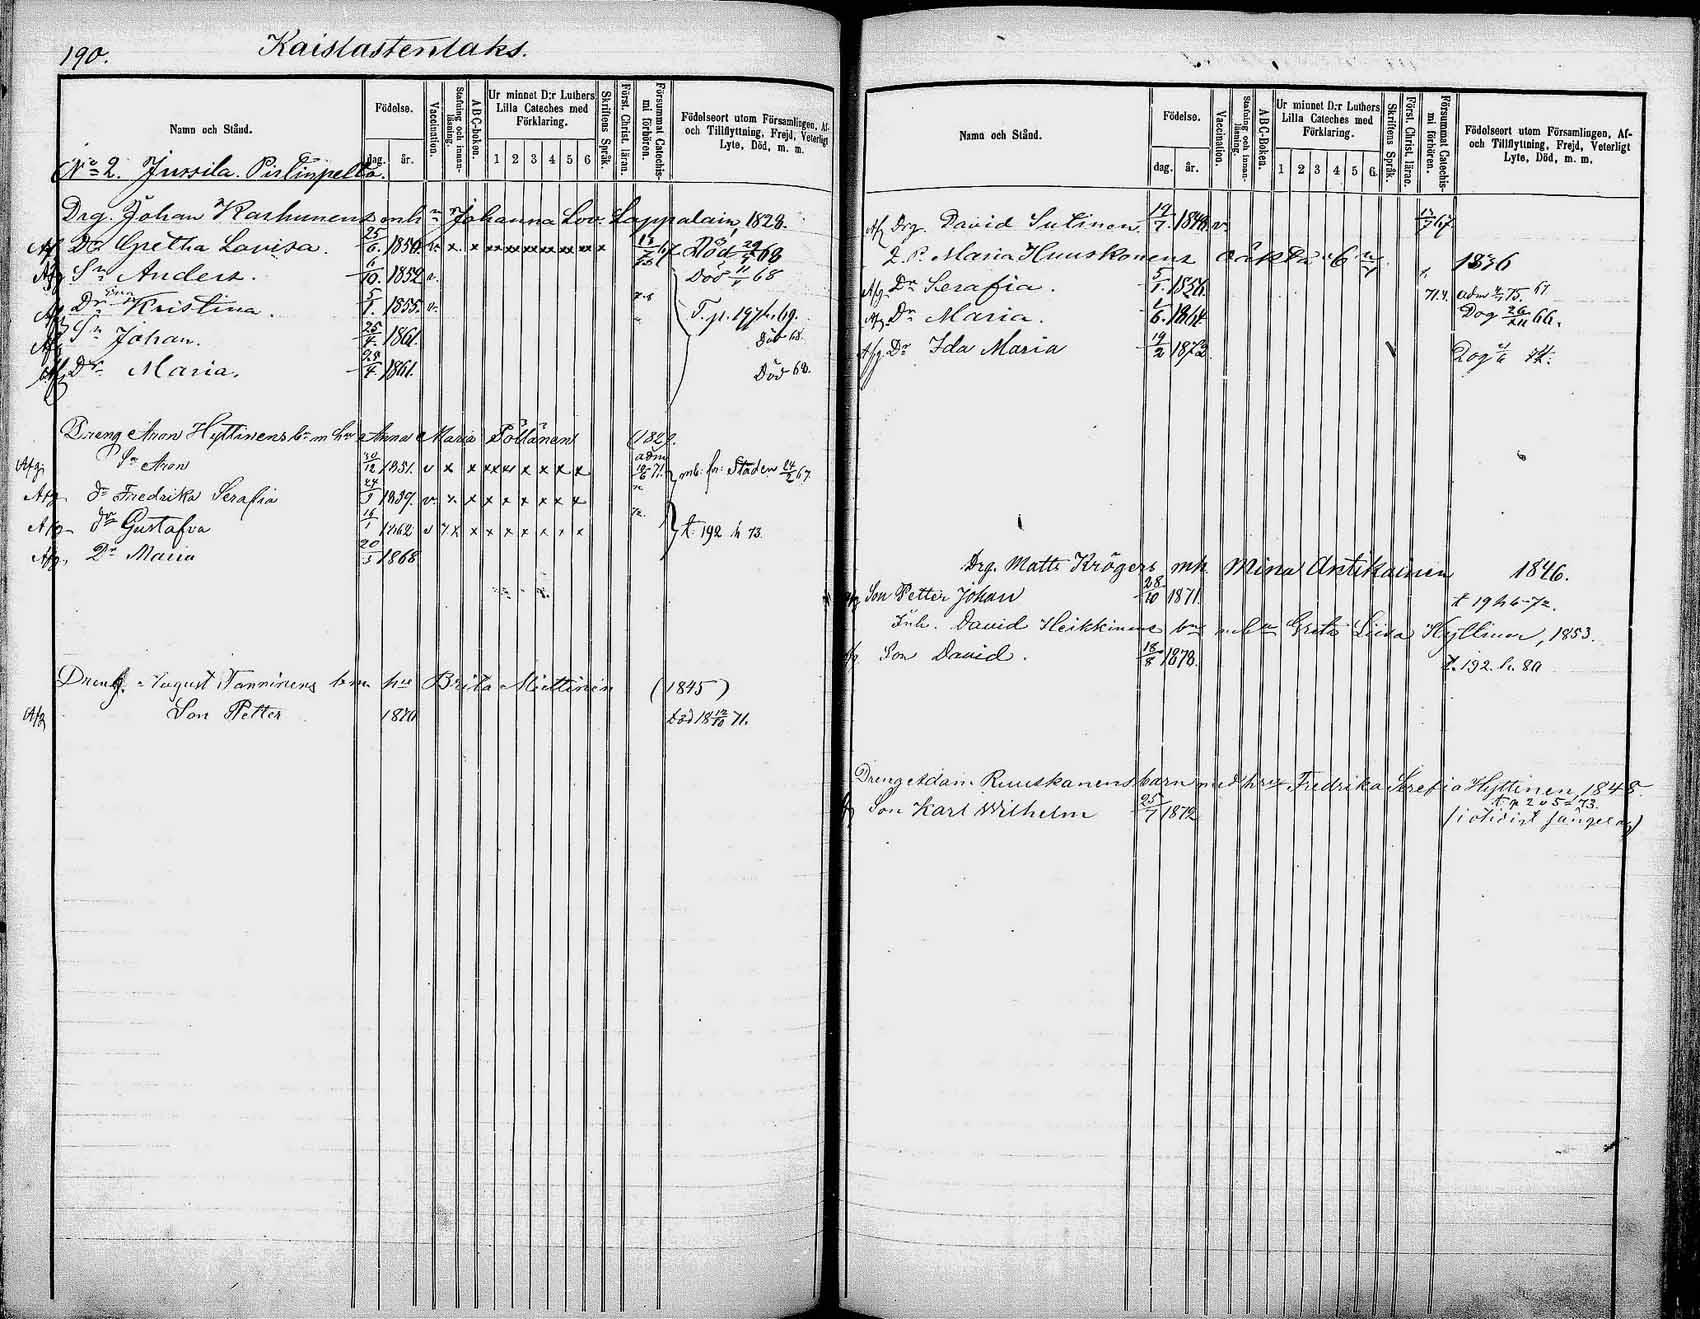 190.
Kaislastenlaks.
Namn och Stånd.
Födelse.
dag.
år.
Vaccination.
Stafning och innanläsning.
ABC-boken.
Ur minnet D:r Luthers
Lilla Cateches med
Förklaring.
1 2 3 4 5 6
Skriftens Språk.
Först. Christ. läran.
Försummat Catechismi förhören.
Födelseort utom Församlingen, Af-
och Tillflyttning, Frejd, Veterligt
Lyte, Död, m. m.
No 2. Jussila.
Drg. Johan Karhunens mh Johanna Lov. Lappalain, 1828.
Afg Dr Gretha Lovisa. 25/6. 1850. v. x x x x x x x x x Död 68
Afg Sn Anders. 6/10. 1852 v. Död 11/1 68
Afg Dr Kristina. 5/1. 1855. v. T. p. 197 h. 69.
Afg Sn Johan. 25/4. 1861. Död 68.
Afg Dr Maria. 28/4. 1861. Död 68.
Dreng Aron Hyttinens bn m hu Anna Maria Pöllänen (1829.
Afg Sn Aron 30/12 1851. v x x x x x x x x adm 71. mb. fr. Staden 24/2 67.
Afg dr Fredrika Serafia 24/3 1859. v. x x x x x x x x
Afg dr Gustafva 16/1 1862 v x x x x x x x t. 192 h 73.
Afg. Dr Maria 20/3 1868
Dreng. August Tanninens bm hu Brita Miettinen (1845)
Afg Son Petter 1870 död 18 12/10 71.
Namn och Stånd.
Födelse.
dag.
år.
Vaccination.
Stafning och innanläsning.
ABC-Boken.
Ur minnet D:r Luthers
Lilla Cateches med
Förklaring.
1 2 3 4 5 6.
Skriftens Språk.
Först. Christ. lärac.
Försummat Catechismi förhören.
Födelseort utom Församlingen, Af-
och Tillflyttning, Frejd, Veterligt
Lyte, Död, m. m.
Afg Drg. David Sutinen. 1848. v. 67.
Maria Huuskonens oäkta 1836
Afg. Dr Serafia. 5/1. 1856. adm 75.
Afg. Dr Maria. 1/6. 1864. Dog 66.
Afg. Dr Ida Maria 19/2 1873. Dog 74.
Drg. Matts Krögers mh. Mina Antikainen 1846.
Afg Son Petter Johan 28/10 1871. t 19 h 72.
Inh. David Heikkinens Greta Liisa Hyttinen, 1853.
Afg Son David. 18/8 1878. t. 192. h. 80
Dreng Adam Ruuskanens barn med hru Fredrika Serefia Hyttinen, 1848.
Afg Son Karl Wilhelm 25/7 1872